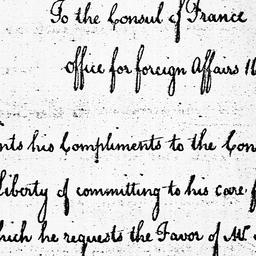 To the Consul of France
Office for foreign Affairs 1
nts his Compliments to the Con
liberty of committing to his care f
hich he requests the Favor of Mr